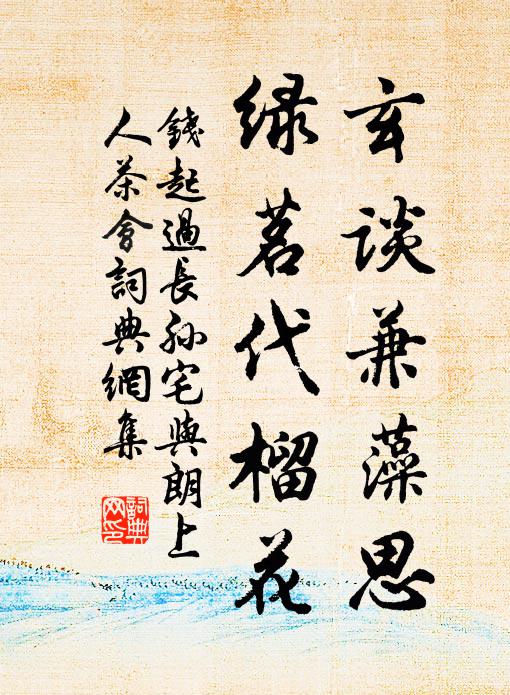 玄談兼藻思
綠茗代榴花
錢起過長孙宅與朗上
人茶會詞典網集
詞典
网印